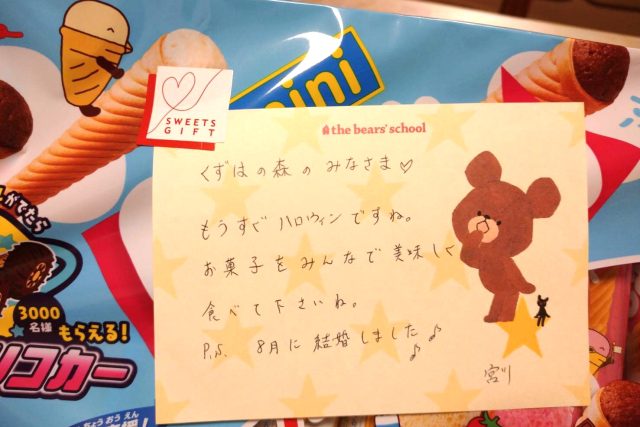 mini
SWEETS
GIFT
the bears' school
くずはの森のみなさま♡
もうすぐハロウィンですね。
お菓子をみんなで美味しく
食べて下さいね。
P.S. 8月に結婚しました♪♪
宮川
3000
名様
もらえる!
コカー
ちょうおうえん